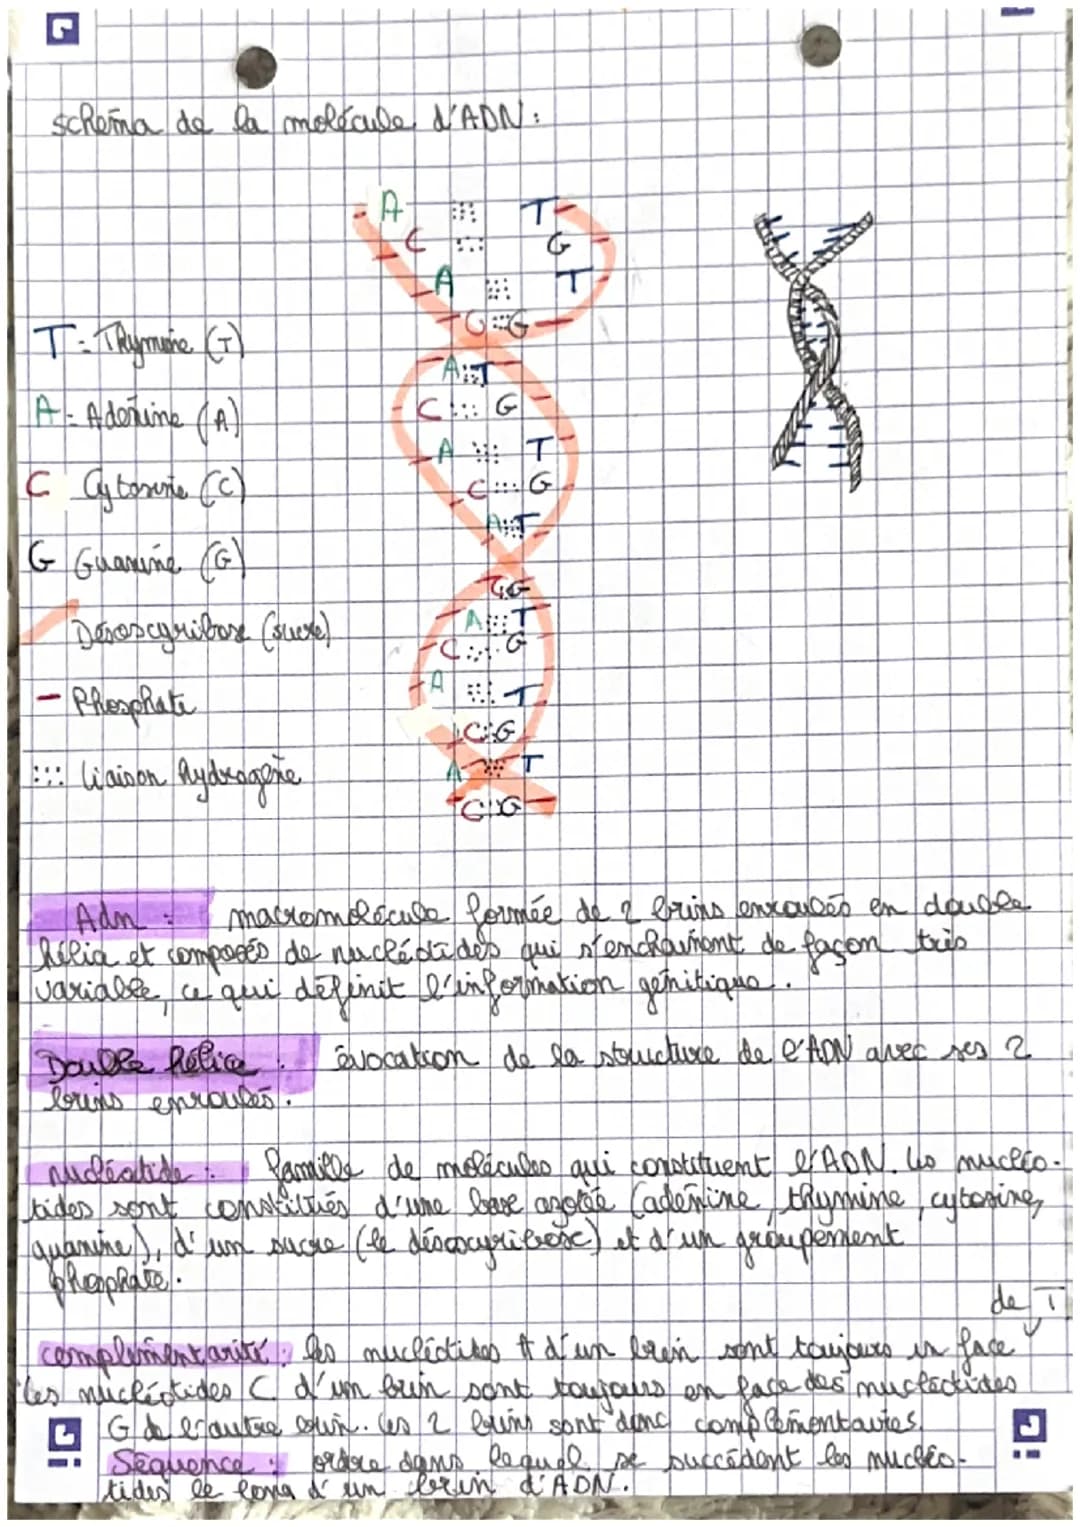 schéma de la molécule d'ADN :
A T
C G
A T
C G
A T
C G
A T
C G
A T
G G
A T
C G
A T
C G
A T
C G
T = Thymine (T)
A = Adénine (A)
C Cytosine (C)
G Guanine (G)
Désoxyribose (sucre)
- Phosphate
liaison hydrogène
Adn : macromolécule formée de 2 brins enroulés en double
hélia et composés de nucléotides qui s'enchainent de façon très
variable, ce qui définit l'information génitique.
Double hélice : évocation de la structure de l'ADN avec ses 2
brins enroulés.
nucléotide : famille de molécules qui constituent l'ADN. Les nucléo-
tides sont constitués d'une base azotée (adénine, thymine, cytosine,
guanine), d'un sucre (le désoxyribose) et d'un groupement
phosphate.
de T
complémentarité : les nucléotides A d'un brin sont toujours en face
les nucléotides C d'un brin sont toujours en face des nucléotides
G de l'autre brin. les 2 brins sont donc complémentaires.
Séquence : ordre dans lequel se succèdent les nucléo-
tides le long d'un brin d'ADN.